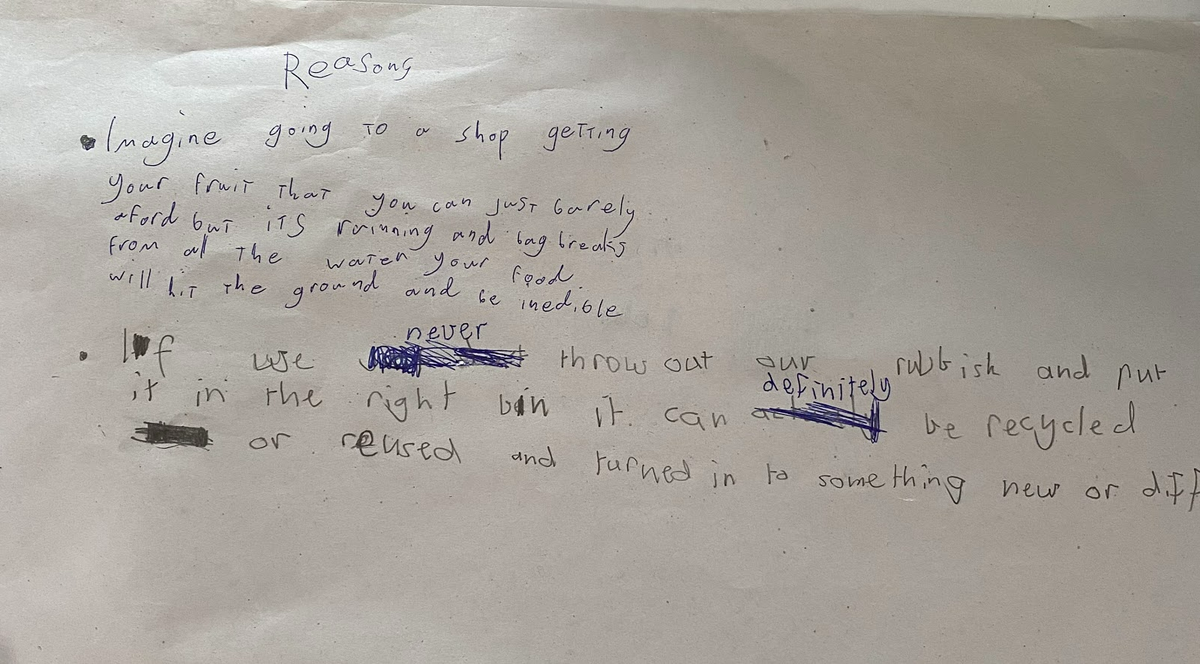 Reasons
• Imagine going to a shop getting
your fruit that you can just barely
aford but its rainning and bag breaks
from all the water your food
will hit the ground and be inedible
never
• If we throw out our rubbish and put
definitely
it in the right bin it can be recycled
or reused and turned in to something new or diff